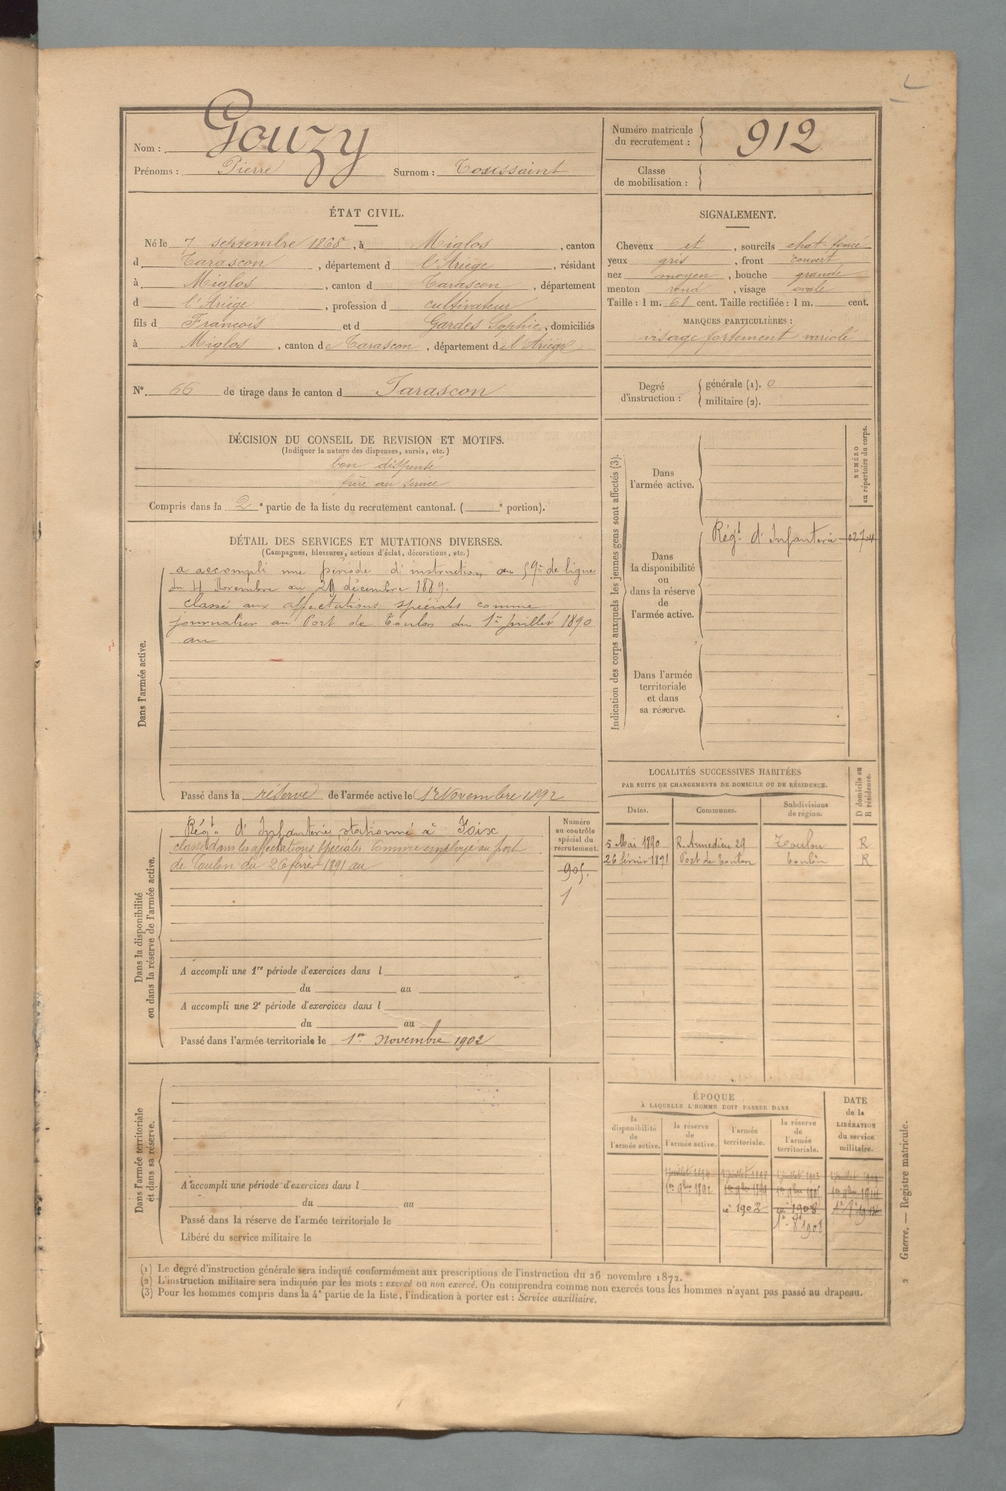 Nom : Gouzy
Prénoms : Pierre Surnom : Toussaint
Numéro matricule du recrutement : 912
Classe de mobilisation :
ÉTAT CIVIL.
Né le 7 septembre 1868, à Miglos, canton
d Tarascon, département d l'Ariège, résidant
à Miglos, canton d Tarascon, département
d l'Ariège, profession d cultivateur
fils d François et d Gardes Sophie, domiciliés
à Miglos, canton de Tarascon, département de l'Ariège
SIGNALEMENT.
Cheveux et, sourcils chat. foncé
yeux gris, front couvert
nez moyen, bouche grande
menton rond, visage ovale
Taille : 1 m. 61 cent. Taille rectifiée : 1 m. cent.
MARQUES PARTICULIÈRES :
visage fortement variolé
N° 66 de tirage dans le canton d Tarascon
Degré d'instruction : générale (1). 0
militaire (2).
DÉCISION DU CONSEIL DE REVISION ET MOTIFS.
(Indiquer la nature des dispenses, sursis, etc.)
bon dispensé
frère au service
Compris dans la 2e partie de la liste du recrutement cantonal. ( e portion).
DÉTAIL DES SERVICES ET MUTATIONS DIVERSES.
(Campagnes, blessures, actions d'éclat, décorations, etc.)
Dans l'armée active.
a accompli une période d'instruction au 59e de ligne
du 4 Novembre au décembre 1889.
classé aux affectations spéciales comme
journalier au Port de Toulon du 1er Juillet 1890
au
Passé dans la réserve de l'armée active le 1er Novembre 1892
Indication des corps auxquels les jeunes gens sont affectés (3).
NUMÉRO au répertoire du corps.
Dans l'armée active.
Dans la disponibilité ou dans la réserve de l'armée active.
Régt d'Infanterie
Dans l'armée territoriale et dans sa réserve.
Dans la disponibilité ou dans la réserve de l'armée active.
Numéro au contrôle spécial du recrutement.
Régt d'Infanterie stationné à Foix
classé dans les affectations spéciales comme employé au port
de Toulon du 26 févr 1891 au
905.
1
A accompli une 1re période d'exercices dans l
du au
A accompli une 2e période d'exercices dans l
du au
Passé dans l'armée territoriale le 1er Novembre 1902
LOCALITÉS SUCCESSIVES HABITÉES
PAR SUITE DE CHANGEMENTS DE DOMICILE OU DE RÉSIDENCE.
Dates. Communes. Subdivisions de région. D domicile ou R résidence.
5 Mai 1890 29 Toulon R
26 février 1891 Port de Toulon Toulon R
Dans l'armée territoriale et dans sa réserve.
A accompli une période d'exercices dans l
du au
Passé dans la réserve de l'armée territoriale le
Libéré du service militaire le
ÉPOQUE
À LAQUELLE L'HOMME DOIT PASSER DANS
la disponibilité de l'armée active.
la réserve de l'armée active.
l'armée territoriale.
la réserve de l'armée territoriale.
DATE de la LIBÉRATION du service militaire.
(1) Le degré d'instruction générale sera indiqué conformément aux prescriptions de l'instruction du 26 novembre 1872.
(2) L'instruction militaire sera indiquée par les mots : exercé ou non exercé. On comprendra comme non exercés tous les hommes n'ayant pas passé au drapeau.
(3) Pour les hommes compris dans la 4e partie de la liste, l'indication à porter est : Service auxiliaire.
2 Guerre. — Registre matricule.